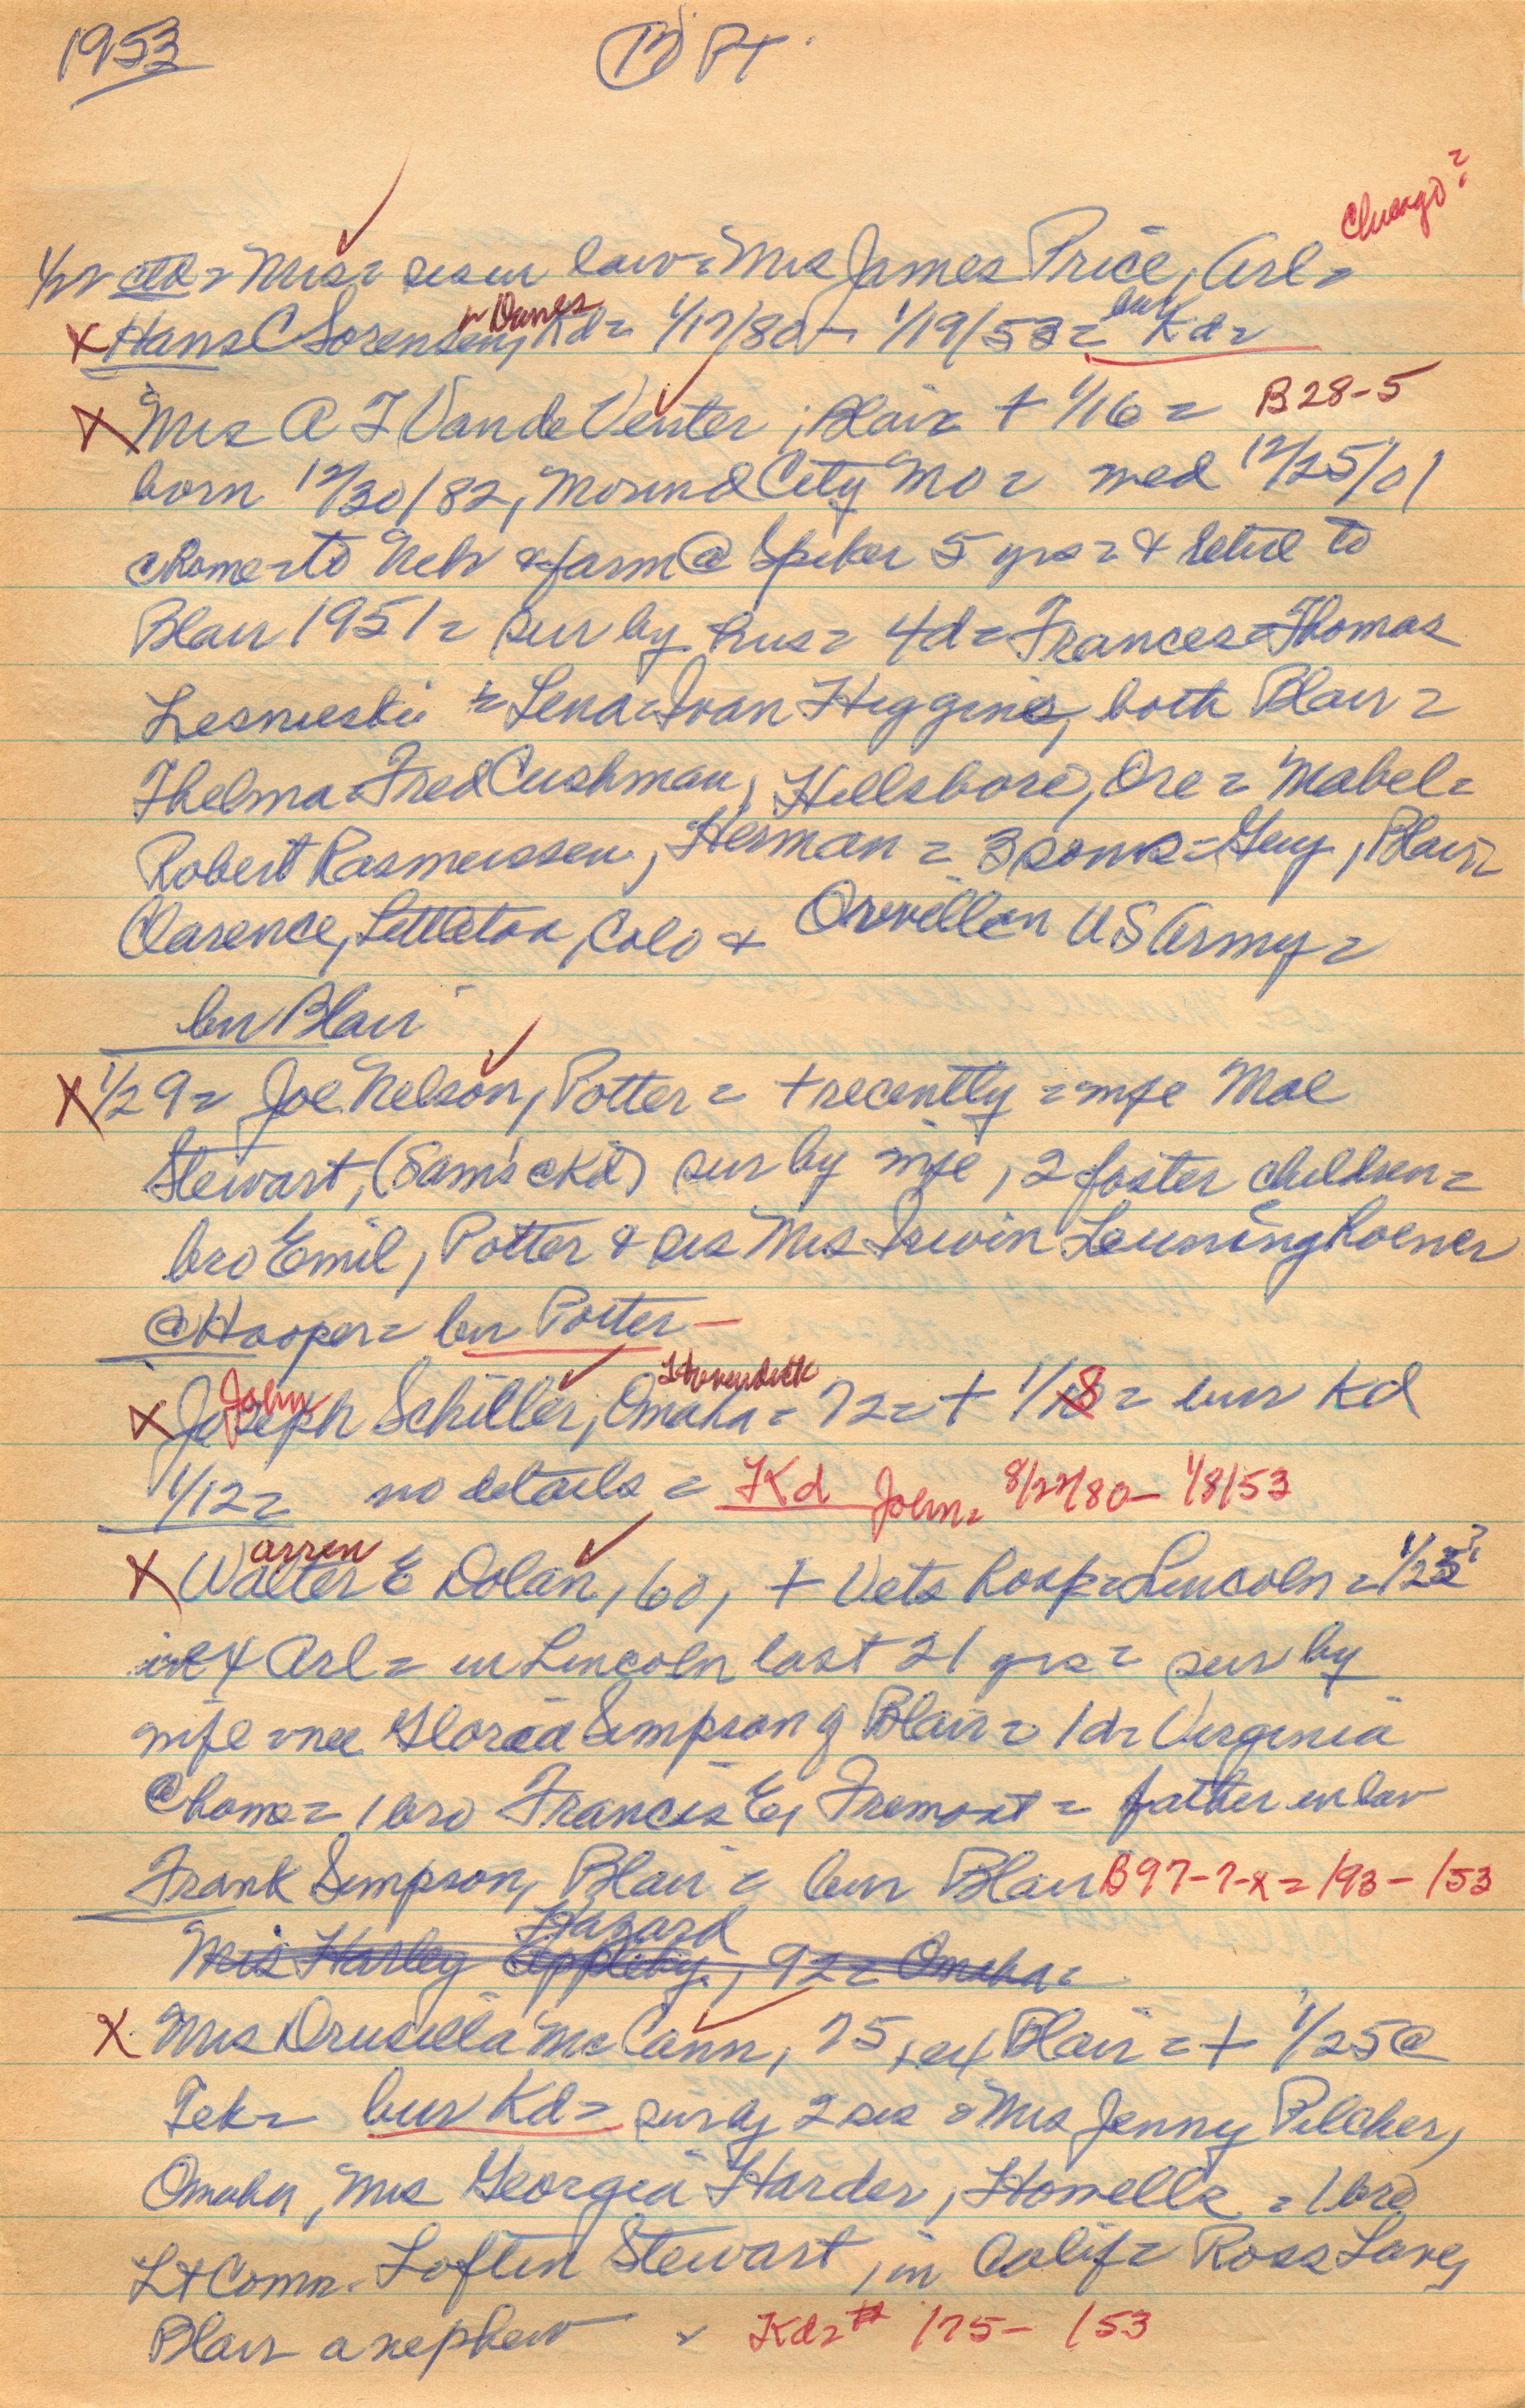 1953 (13) PT
Chicago?
1/22 ctd = Mrs = sis in law = Mrs James Price, Arl =
in Danes bur
X Hans C Sorensen, Kd = 1/17/80 - 1/19/53 = Kd =
X Mrs A J Vande Venter, Blair = + 1/16 = B28-5
born 12/30/82, Mound City Mo = med 12/25/01
& come to Neb & farm @ Spiker 5 yrs = & retire to
Blair 1951 = sur by hus = 4d = Frances = Thomas
Lesnieski = Lena = Ivan Higgins, both Blair =
Thelma = Fred Cushman, Hillsboro, Ore = Mabel =
Robert Rasmussen, Herman = 3 sons = Guy, Blair =
Clarence, Littleton, Colo & Orville in US Army =
bur Blair
X 1/29 = Joe Nelson, Potter = + recently = wife Mae
Stewart, (Sam's @ Kd) sur by wife, 2 foster children =
bro Emil, Potter & sis Mrs Irwin Leuninghoener
@ Hooper = bur Potter -
John Hovendick
X Joseph Schiller, Omaha = 72 = + 1/8 = bur Kd
1/12 = no details = Kd John = 8/27/80 - 1/8/53
arren
X Walter E Dolan, 60, + Vets hosp = Lincoln = 1/23?
in ex Arl = in Lincoln last 21 yrs = sur by
wife = nee Gloria Simpson of Blair = 1d = Virginia
@ home = 1 bro Francis E, Fremont = father in law
Frank Simpson, Blair = bur Blair B97-7-x = /93 - /53
Hazard
Mrs Harley Appleby, 92 = Omaha =
X Mrs Drusilla McCann, 75, ex Blair = + 1/25 @
Tek = bur Kd = sur by 2 sis = Mrs Jenny Pilcher,
Omaha, Mrs Georgia Harder, Howells = 1 bro
Lt Comm. Loften Stewart, in Calif = Ross Lane,
Blair a nephew Kd = # /75 - /53